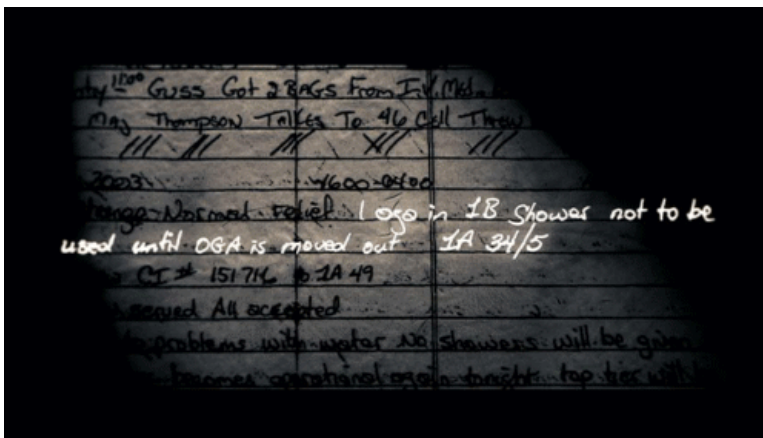 1500 Guss Got 2 BAGS From I.V. Med
Maj Thompson Talks To 46 Cell Threw
/// /// /// /// ///
2003 1600-0400
change Normal relief 1 oga in 1B Shower not to be
used until OGA is moved out 1A 34/5
CI # 151716 to 1A 49
served All accepted
problems with water No showers will be given
becomes operational again tonight top tier will